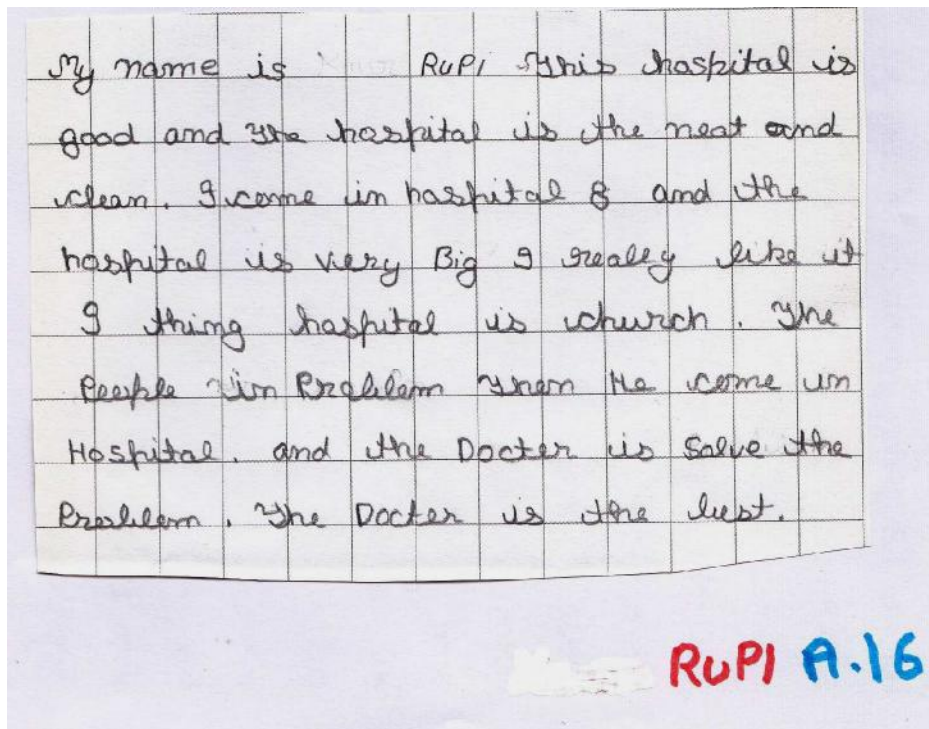 My name is RUPI This hospital is
good and The hospital is the neat and
clean. I come in hospital & and the
hospital is very Big I really like it
I thing hospital is church. The
Peeple in Problem Then He come in
Hospital. and the Docter is Salve the
Problem. The Docter is the best.
RUPI A.16